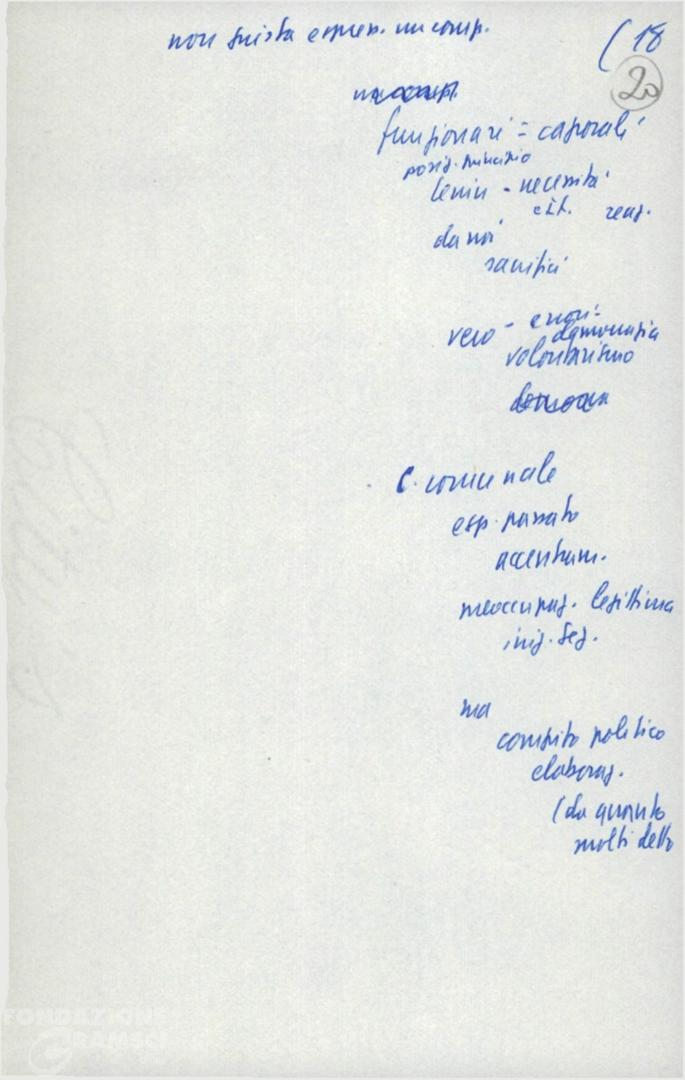 non giusta espress. un comp.
(18
20
funzionari = caporali
posiz. principio
Lenin - necessità
reaz.
da noi
sacrifici
vero - errori-
democrazia
volontarismo
C. comunale
esp. passato
accentram.
preoccupaz. legittima
iniz. seg.
ma
compito politico
elaboraz.
(da quanto
molti detto
FONDAZIONE
GRAMSCI